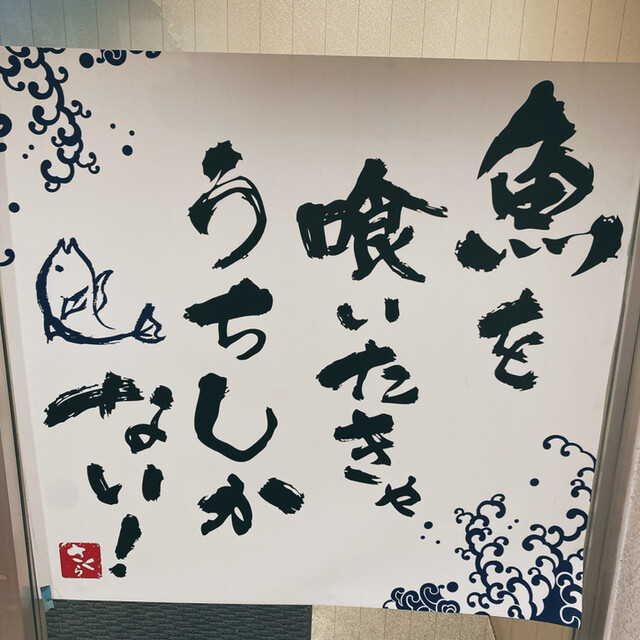 魚を
喰いたきゃ
うちしか
ない!
さくら